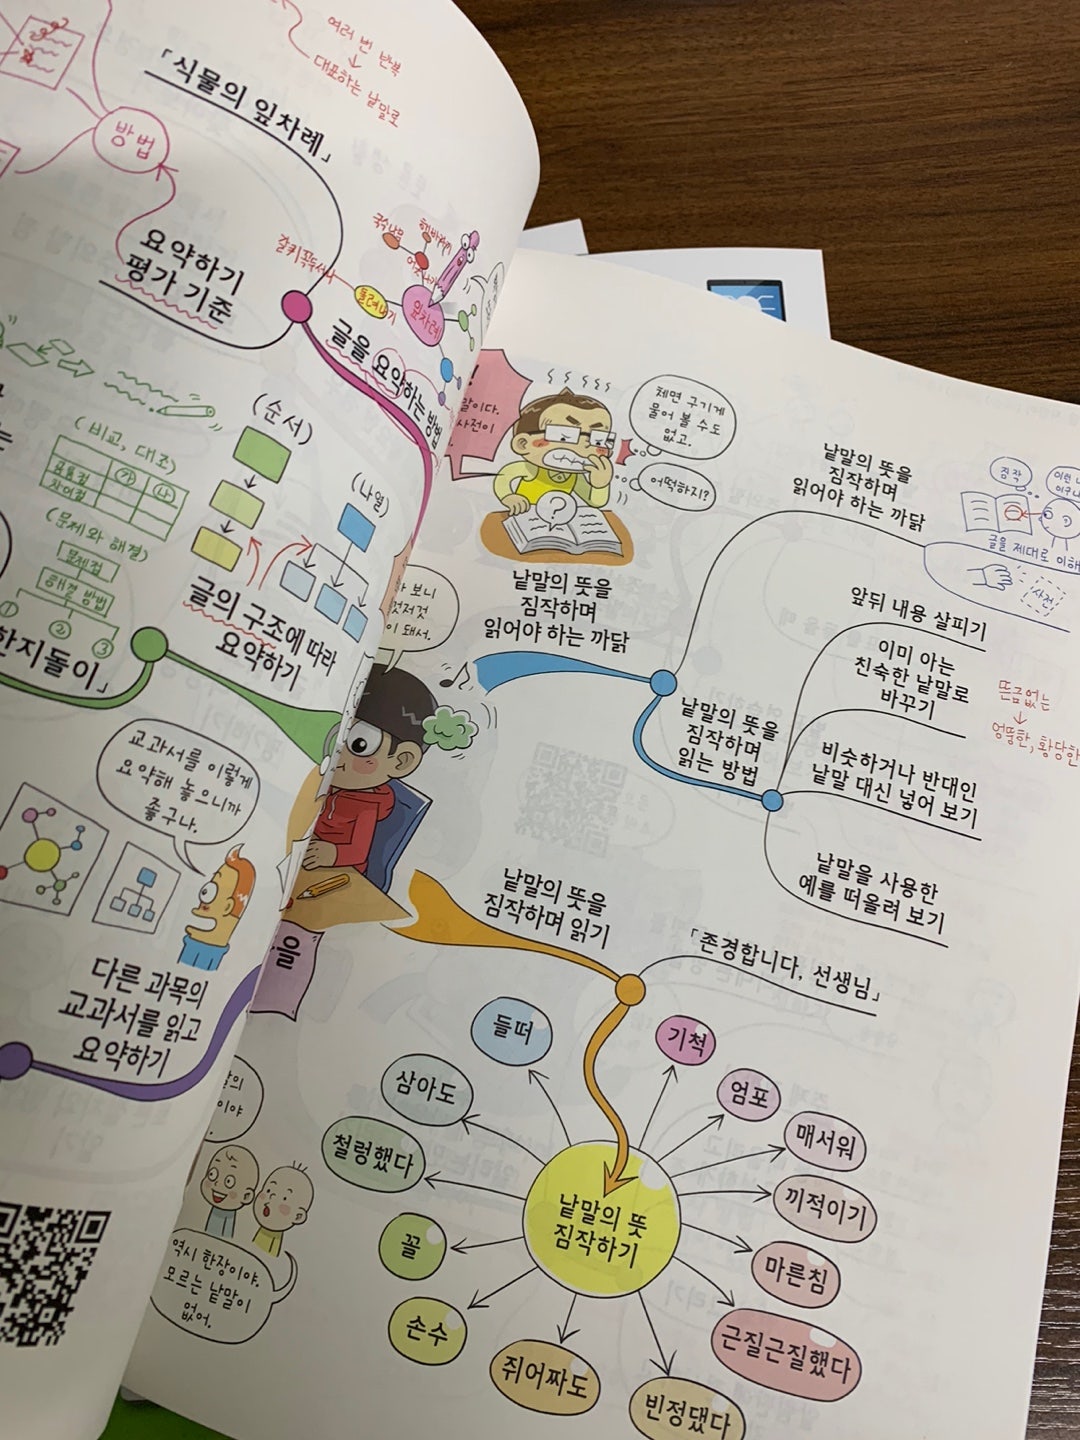 여러 번 반복
대표하는 낱말로
「식물의 잎차례」
방법
요약하기
평가 기준
국수나무
해바라기
갈퀴꼭두서니
돌려나기
잎차례
글을 요약하는 방법
(순서)
(비교, 대조)
공통점
차이점
㉮
㉯
(나열)
(문제와 해결)
문제점
해결 방법
①
②
③
글의 구조에 따라
요약하기
한지돌이」
교과서를 이렇게
요약해 놓으니까
좋구나.
다른 과목의
교과서를 읽고
요약하기
말이다.
사전이
체면 구기게
물어 볼 수도
없고.
어떡하지?
?
낱말의 뜻을
짐작하며
읽어야 하는 까닭
보니
것저것
이 돼서.
낱말의 뜻을
짐작하며
읽어야 하는 까닭
짐작
글을 제대로 이해
사전
낱말의 뜻을
짐작하며
읽는 방법
앞뒤 내용 살피기
이미 아는
친숙한 낱말로
바꾸기
뜬금없는
엉뚱한, 황당한
비슷하거나 반대인
낱말 대신 넣어 보기
낱말을 사용한
예를 떠올려 보기
낱말의 뜻을
짐작하며 읽기
「존경합니다, 선생님」
을
이야
역시 한장이야.
모르는 낱말이
없어.
낱말의 뜻
짐작하기
들떠
기척
삼아도
엄포
매서워
철렁했다
끼적이기
꼴
마른침
손수
근질근질했다
쥐어짜도
빈정댔다